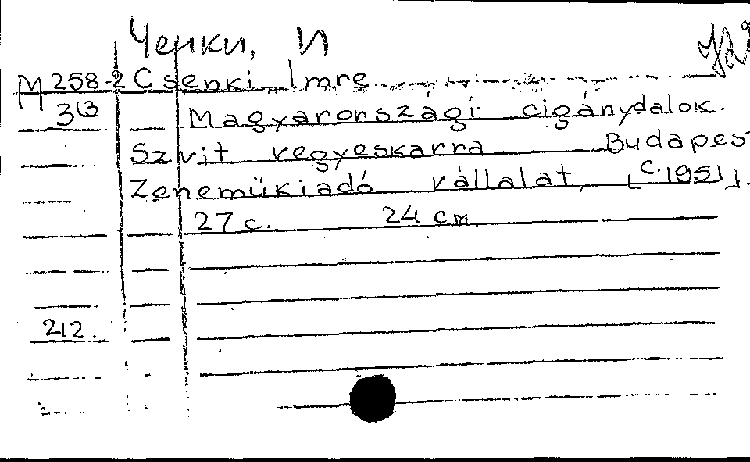 Ченки, И
М 258-2 Csenki Imre
3(3 Magyarországi cigánydalok.
Szvit vegyeskarra Budapes
Zeneműkiadó vállalat, [c.1951].
27 c. 24 cm
212.